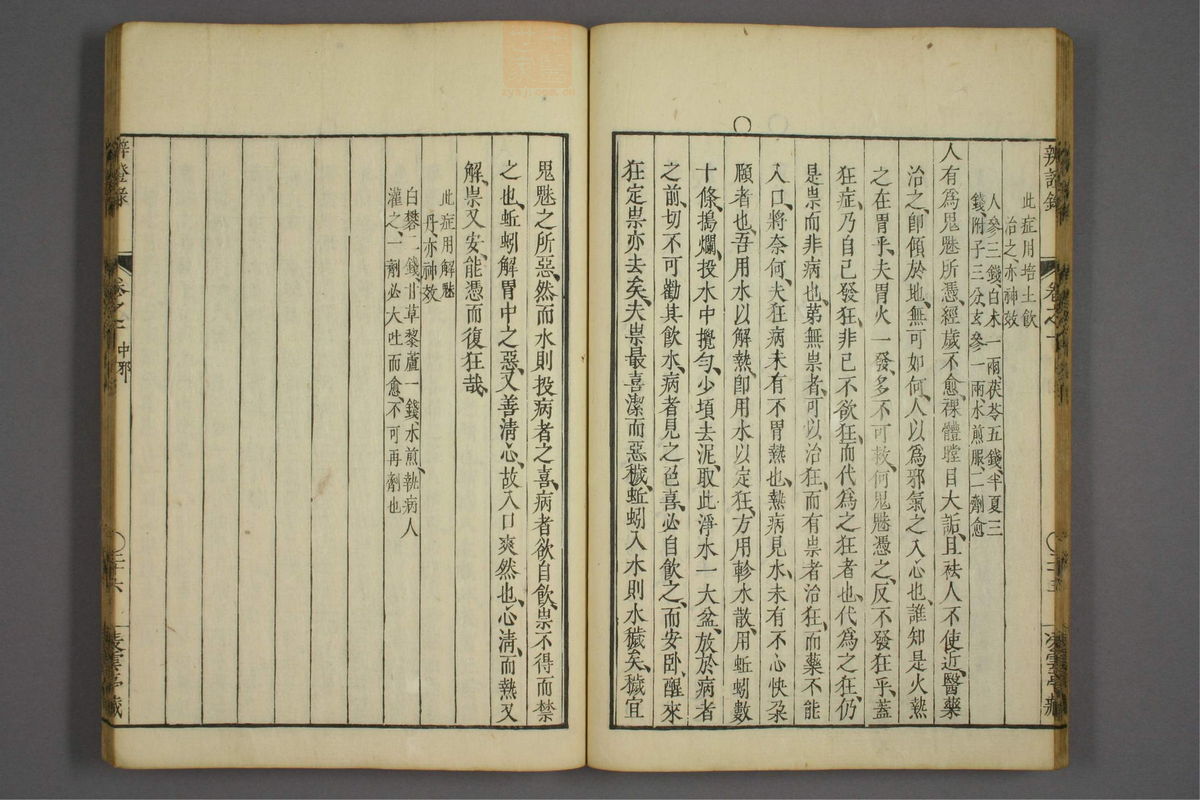 此症用培土飲
治之亦神效
人參三錢、白朮一兩、茯苓五錢、半夏三
錢、附子三分、玄參一兩、水煎服、二劑愈
人有爲鬼魅所憑、經歲不愈、裸體瞠目大詬、且袪人不使近、醫藥
治之、卽傾於地、無可如何、人以爲邪氣之入心也、誰知是火熱
之在胃乎、夫胃火一發、多不可救、何鬼魅憑之、反不發狂乎、蓋
狂症、乃自己發狂、非己不欲狂、而代爲之狂者也、代爲之狂、仍
是祟而非病也、第無祟者、可以治狂、而有祟者治狂、而藥不能
入口、將奈何、夫狂病未有不胃熱也、熱病見水、未有不心快朶
頤者也、吾用水以解熱、卽用水以定狂、方用軫水散、用蚯蚓數
十條、搗爛、投水中攪勻、少頃去泥、取此淨水一大盆、放於病者
之前、切不可勸其飲水、病者見之色喜、必自飲之、而安卧、醒來
狂定祟亦去矣、夫祟最喜潔而惡穢、蚯蚓入水、則水穢矣、穢宜
鬼魅之所惡、然而水則投病者之喜、病者欲自飲、祟不得而禁
之也、蚯蚓解胃中之惡、又善淸心、故入口爽然也、心淸、而熱又
解、祟又安、能憑而復狂哉、
此症用解魅
丹亦神效
白礬二錢、甘草黎蘆一錢、水煎、執病人
灌之、一劑必大吐而愈、不可再劑也
辨證錄
卷之一
中邪
凌雲亭藏